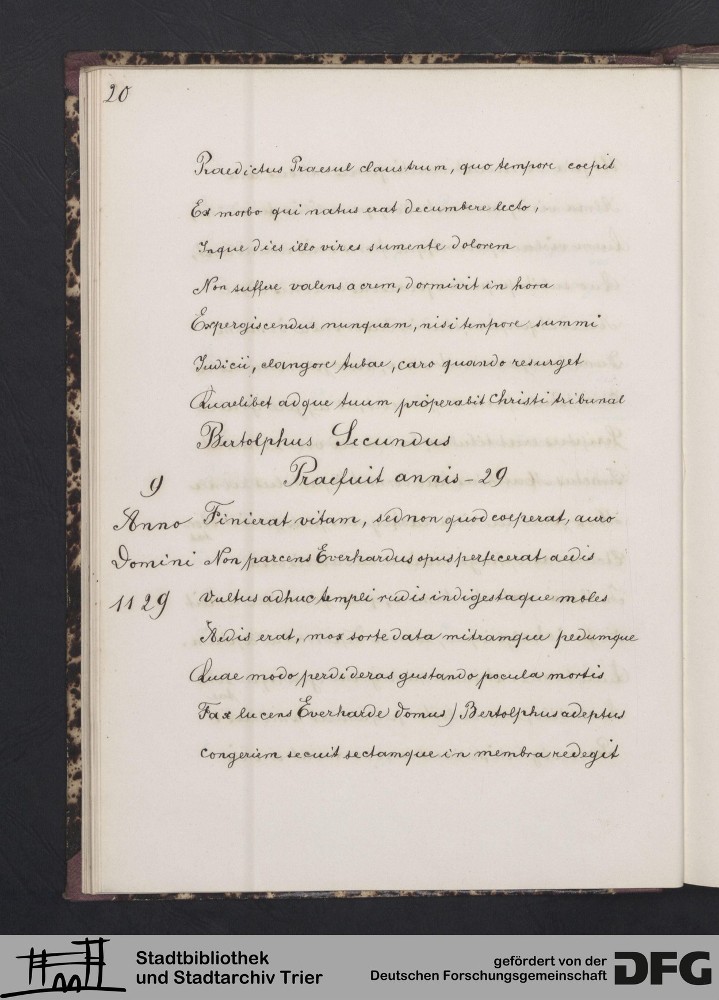 20
Praedictus Praesul claustrum, quo tempore coepit
Ex morbo qui natus erat decumbere lecto,
Inque dies illo vires sumente dolorem
Non suffere valens acrem, dormivit in hora
Expergiscendus nunquam, nisi tempore summi
Judicii, clangore tubae, caro quando resurget
Quaelibet adque tuum properabit Christi tribunal
Bertolphus Secundus
Praefuit annis - 29
9
Anno
Domini
1129
Finierat vitam, sed non quod coeperat, auro
Non parcens Everhardus opus perfecerat aedis
Vultus adhuc templi rudis indigestaque moles
Aedis erat, mox sorte data mitramque pedumque
Quae modo perdideras gustando pocula mortis
Fax lucens Everharde domus) Bertolphus adeptus
Congeriem secuit sectamque in membra redegit
Stadtbibliothek
und Stadtarchiv Trier
gefördert von der
Deutschen Forschungsgemeinschaft
DFG